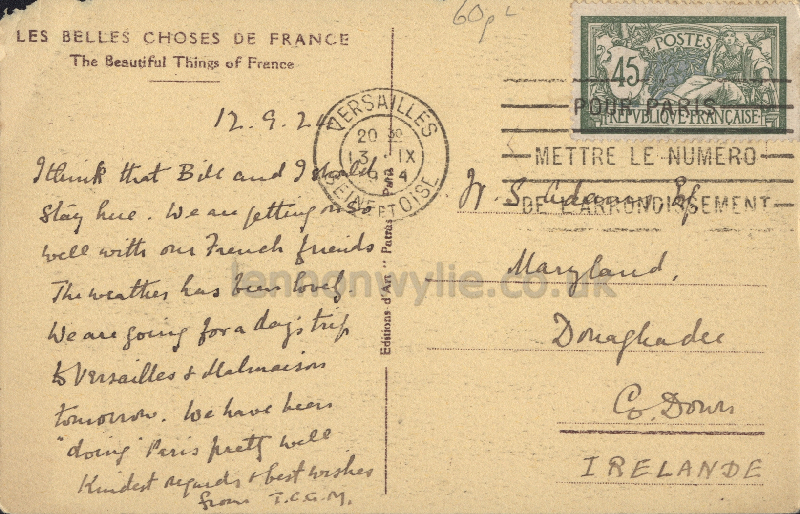 60p
LES BELLES CHOSES DE FRANCE
The Beautiful Things of France
12.9.24
I think that Bill and I should
stay here. We are getting on so
well with our French friends
The weather has been lovely.
We are going for a days trip
to Versailles & Malmaison
tomorrow. We have been
"doing" Paris pretty well
Kindest regards & best wishes
from T.C.G.M.
VERSAILLES
20 30
13 IX
1924
SEINE ET OISE
POSTES
45
REPUBLIQUE FRANÇAISE
POUR PARIS
METTRE LE NUMERO
DE L'ARRONDISSEMENT
Editions d'Art "Patras" Paris
W. S. Adams Esq
Maryland,
Donaghadee
Co. Down
IRELANDE
lennonwylie.co.uk